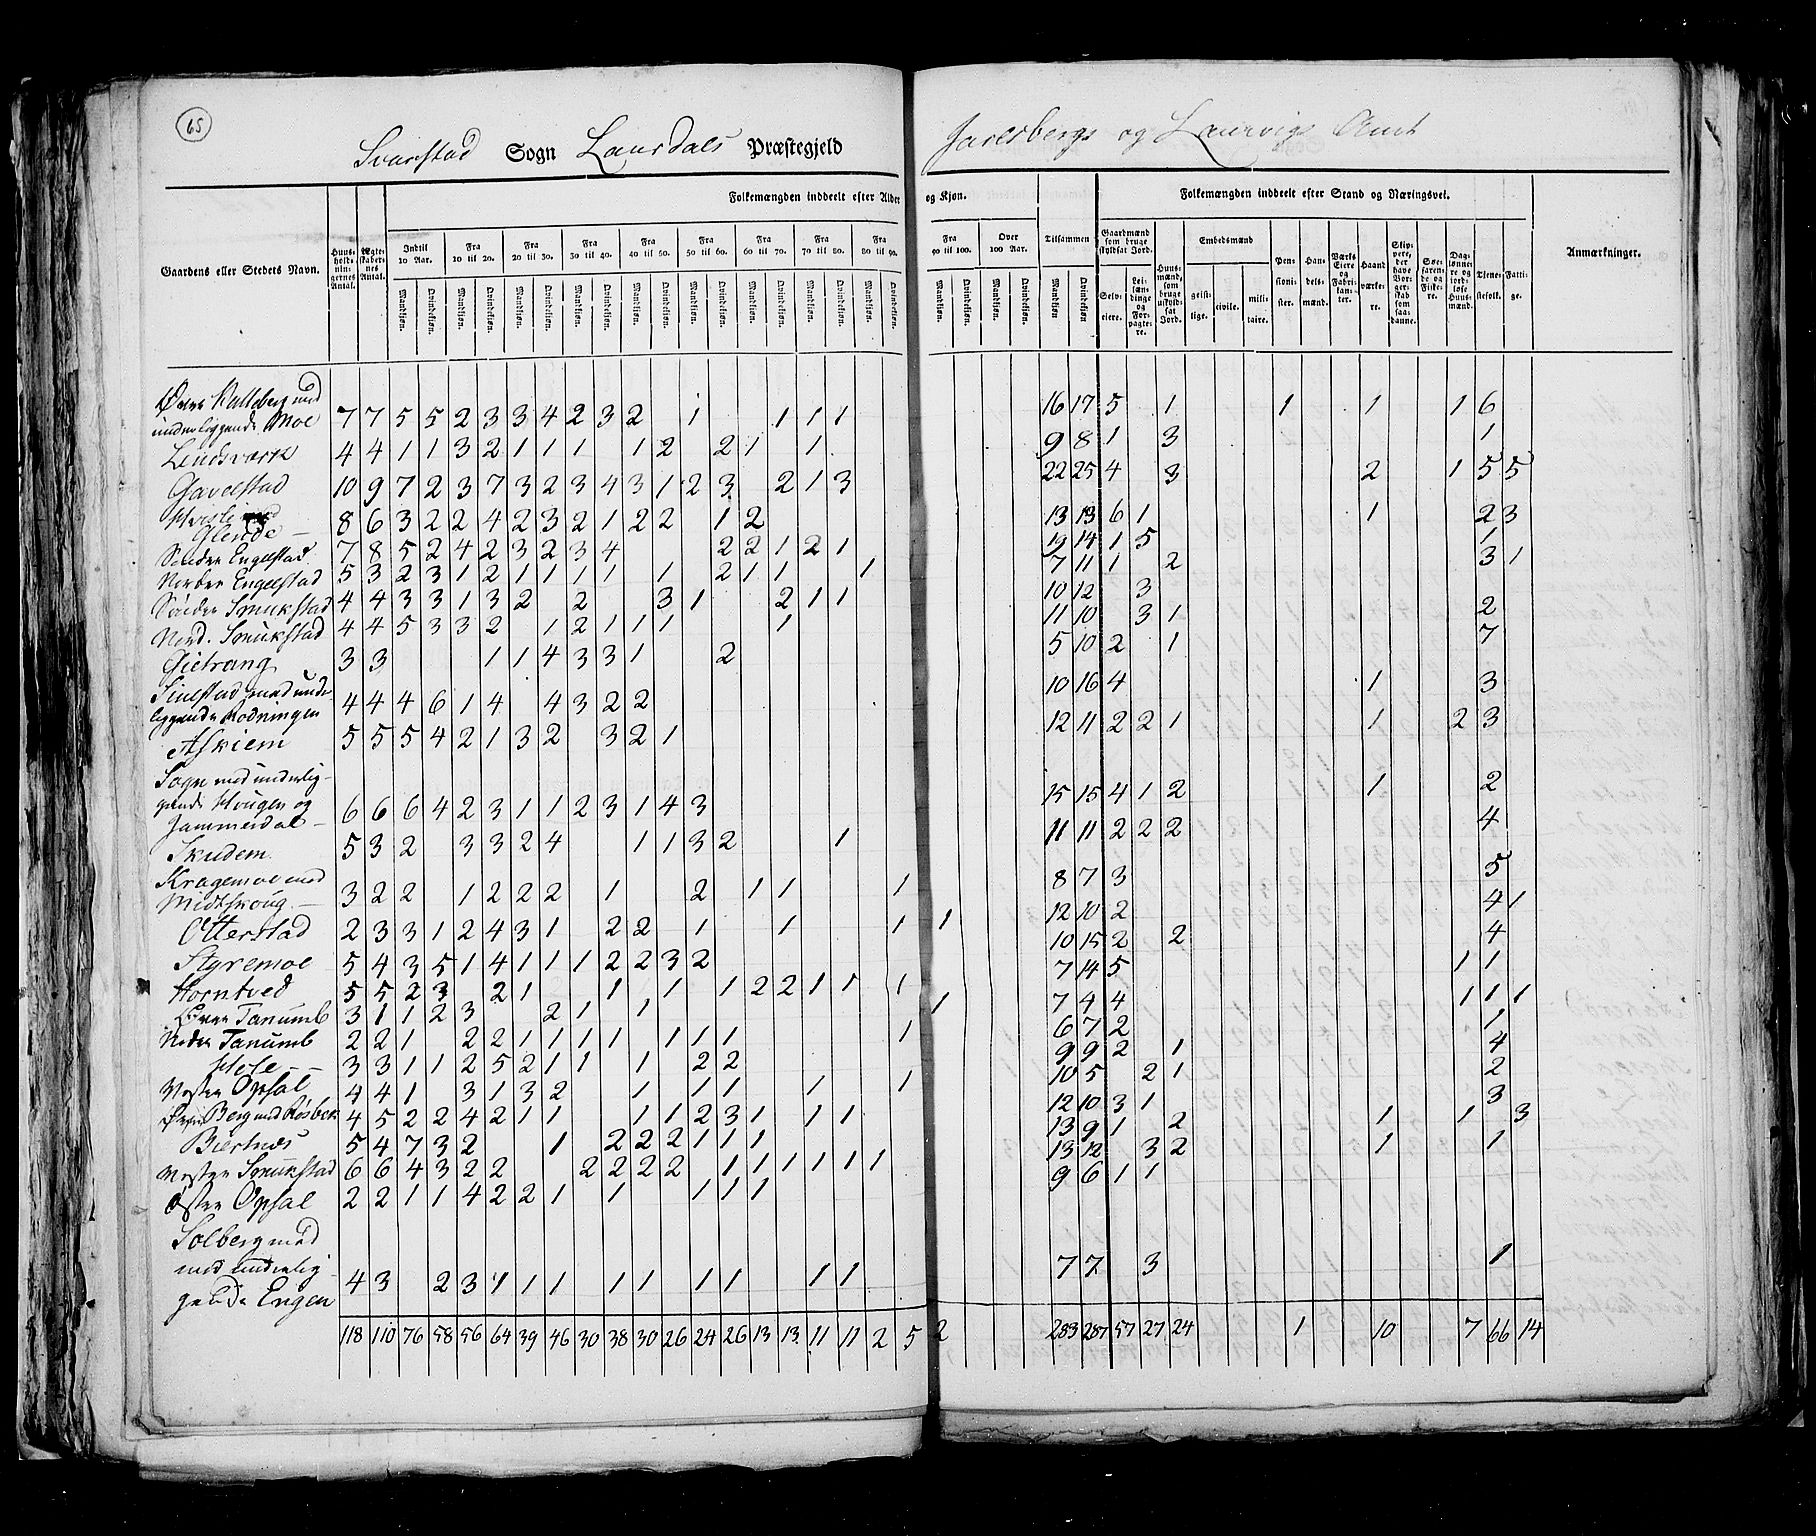 65
Svarstad Sogn Laurdals Præstegjeld Jarlsbergs og Laurvigs Amt
Folkemængden inddeelt efter Alder og Kjøn. Tilsammen Folkemængden inddeelt efter Stand og Næringsvei.
Gaardens eller Stedets Navn. Huus-holdningernes Antal. Ægteskabernes Antal. Indtil 10 Aar. Fra 10 til 20. Fra 20 til 30. Fra 30 til 40. Fra 40 til 50. Fra 50 til 60. Fra 60 til 70. Fra 70 til 80. Fra 80 til 90. Fra 90 til 100. Over 100 Aar. Gaardmænd som bruge skyldsat Jord. Huusmænd, som bruge uskyldsat Jord. Embedsmænd Pensionister. Handelsmænd. Værks Eiere og Fabrikanter. Haandværkere. Slippere, der have Borgerskab som saadanne. Søefarende og Fiskere. Daglønnere og jordløse Huusmænd. Tjenestefolk. Fattige. Anmærkninger.
Mandkjøn. Qvindekjøn. Mandkjøn. Qvindekjøn. Mandkjøn. Qvindekjøn. Mandkjøn. Qvindekjøn. Mandkjøn. Qvindekjøn. Mandkjøn. Qvindekjøn. Mandkjøn. Qvindekjøn. Mandkjøn. Qvindekjøn. Mandkjøn. Qvindekjøn. Mandkjøn. Qvindekjøn. Mandkjøn. Qvindekjøn. Mandkjøn Qvindekjøn Selveiere. Leilændinge og Forpagtere. geistlige. civile. militaire.
Øvre med
underliggende Moe 7 7 5 5 2 3 3 4 2 3 2 1 1 1 1 16 17 5 1 1 1 1 6
Lindsværk 4 4 1 1 3 2 1 1 1 1 2 2 1 1 9 8 1 3 1
Gavelstad 10 9 7 2 3 7 3 2 3 4 3 1 2 3 2 1 3 22 25 4 3 2 1 5 5
Hvisle med
Glende 8 6 3 2 2 4 2 3 2 1 2 2 1 2 13 13 6 1 1 2 3
Sønder Engelstad 7 8 5 2 4 2 3 2 3 4 2 2 1 2 1 19 14 1 5 1
Norder Engelstad 5 3 2 3 1 2 1 1 1 1 1 2 1 1 1 7 11 1 2 3 1
Sönder Smukstad 4 4 3 3 1 3 2 2 3 1 2 1 1 10 12 3
Nord. Smukstad 4 4 5 3 3 2 1 2 1 1 1 1 11 10 3 1 2
Gietrang 3 3 1 1 4 3 3 1 2 5 10 2 1 7
Sinestad med under
liggende Rodningen 4 4 4 6 1 4 4 3 2 2 10 16 4 1 3
Askiem 5 5 5 4 2 1 3 2 3 2 1 12 11 2 2 1 1 2 3
Sogn med underlig-
gende Hougen og
Jammerdal 6 6 6 4 2 3 1 1 2 3 1 4 3 15 15 4 1 2 1 2
Skudem 5 3 2 3 3 2 4 1 1 3 2 1 11 11 2 2 2 4
Kragemoe med
Midtskoug 3 2 2 1 2 2 2 1 2 1 1 1 8 7 3 5
Otterstad 2 3 3 1 2 4 3 1 2 2 1 1 1 1 12 10 2 4 1
Styremoe 5 4 3 5 1 4 1 1 1 2 2 3 2 10 15 2 2 4
Horntved 5 5 2 3 2 1 1 1 1 2 2 1 1 1 7 14 5 1 1
Øvre Tanumb 3 1 1 2 3 2 1 1 1 7 4 4 1 1 1
Neder Tanumb 2 2 1 2 2 1 1 1 1 1 1 1 1 6 7 2 1
Hole 3 3 1 1 2 5 2 1 1 1 2 2 9 9 2 1 4
Vester Opsal 4 4 1 3 1 3 2 1 1 1 1 1 10 5 2 1 2
Berg med 4 5 2 2 4 2 1 1 1 1 2 3 1 1 1 12 10 3 1 3
Biertnæs 5 4 7 3 2 1 2 2 2 1 1 1 13 9 1 2 1 1 3
Vester Smukstad 6 6 4 3 2 2 2 2 2 2 1 1 1 1 1 1 13 12 3 2 1 1
Øster Opsal 2 2 1 1 4 2 2 1 1 1 1 1 9 6 1 1
Solberg med
med underlig
gende Engen 4 3 2 3 1 1 1 1 1 1 1 1 1 7 7 3 1
118 110 76 58 56 64 39 46 30 38 30 26 24 26 13 13 11 11 2 5 2 283 287 57 27 24 1 10 7 66 14